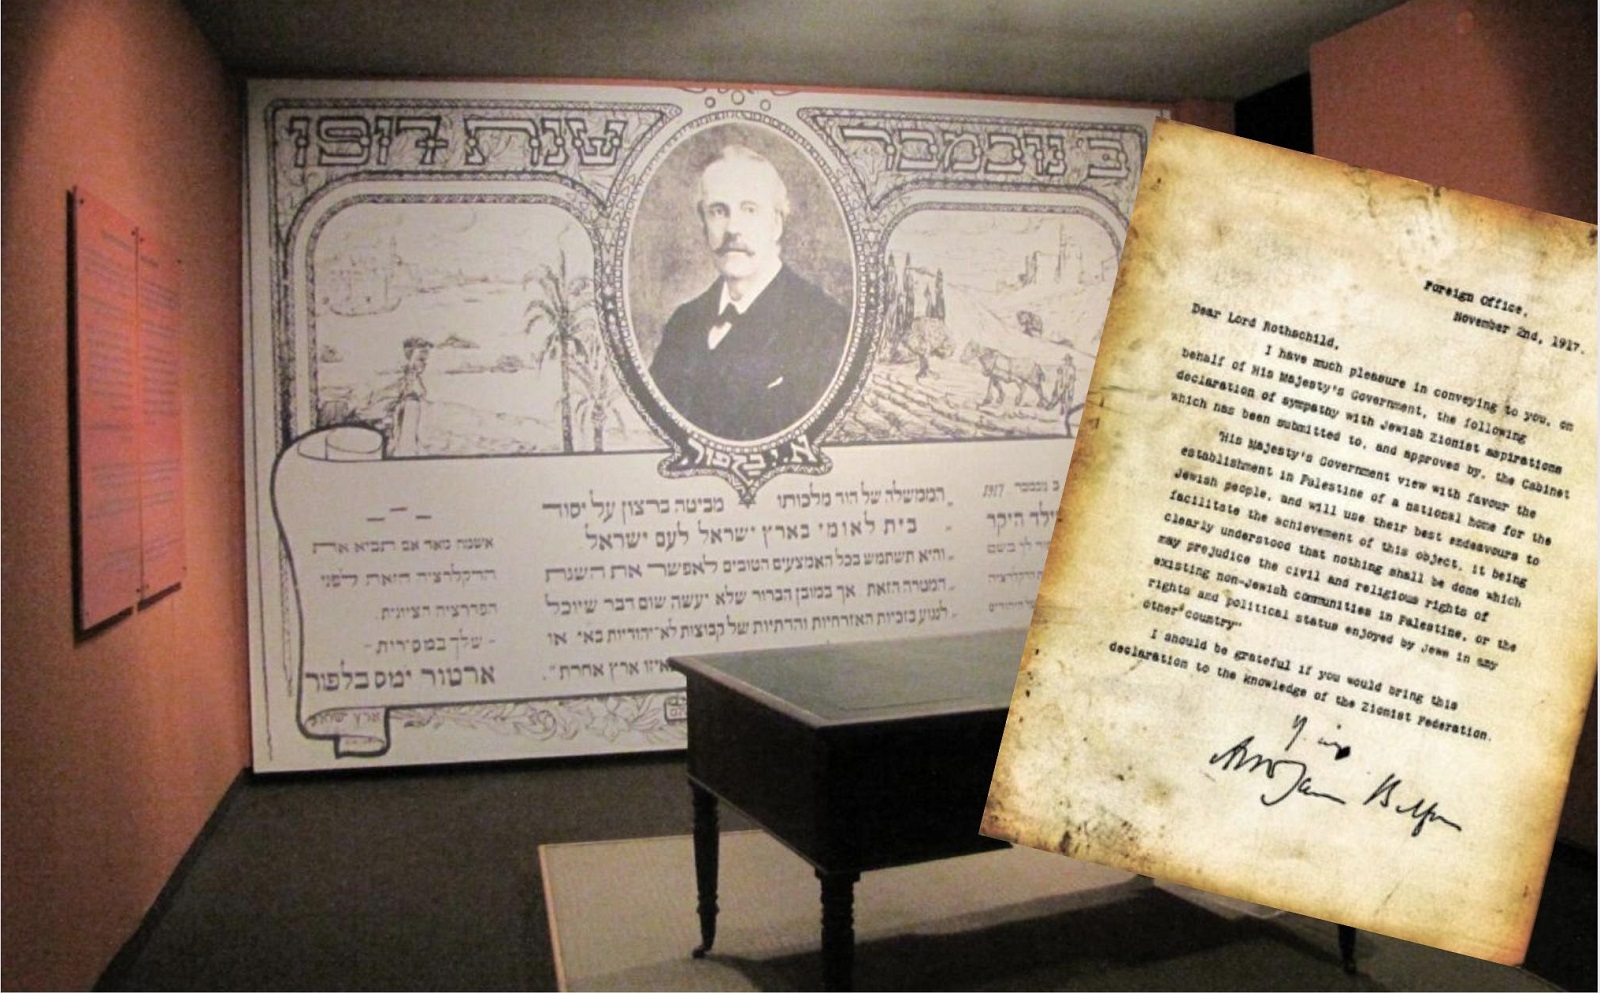 ב נובמבר
שנת 1917
א.י. בלפור
ב נובמבר 1917
הממשלה של הוד מלכותו מביטה ברצון על יסוד
בית לאומי בארץ ישראל לעם ישראל
והיא תשתמש בכל האמצעים הטובים לאפשר את השגת
המטרה הזאת אך במובן הברור שלא יעשה שום דבר שיוכל
לנגוע בזכיות האזרחיות והדתיות של קבוצות לא־יהודיות בא״י או
ארץ אחרת״.
אשמח מאד אם תביא את
הדקלרציה הזאת לפני
הפדרציה הציונית.
- שלך במסירות -
ארטור ימס בלפור
ארץ ישראל
Foreign Office,
November 2nd, 1917.
Dear Lord Rothschild,
I have much pleasure in conveying to you, on
behalf of His Majesty's Government, the following
declaration of sympathy with Jewish Zionist aspirations
which has been submitted to, and approved by, the Cabinet
"His Majesty's Government view with favour the
establishment in Palestine of a national home for the
Jewish people, and will use their best endeavours to
facilitate the achievement of this object, it being
clearly understood that nothing shall be done which
may prejudice the civil and religious rights of
existing non-Jewish communities in Palestine, or the
rights and political status enjoyed by Jews in any
other country"
I should be grateful if you would bring this
declaration to the knowledge of the Zionist Federation.
Arthur James Balfour